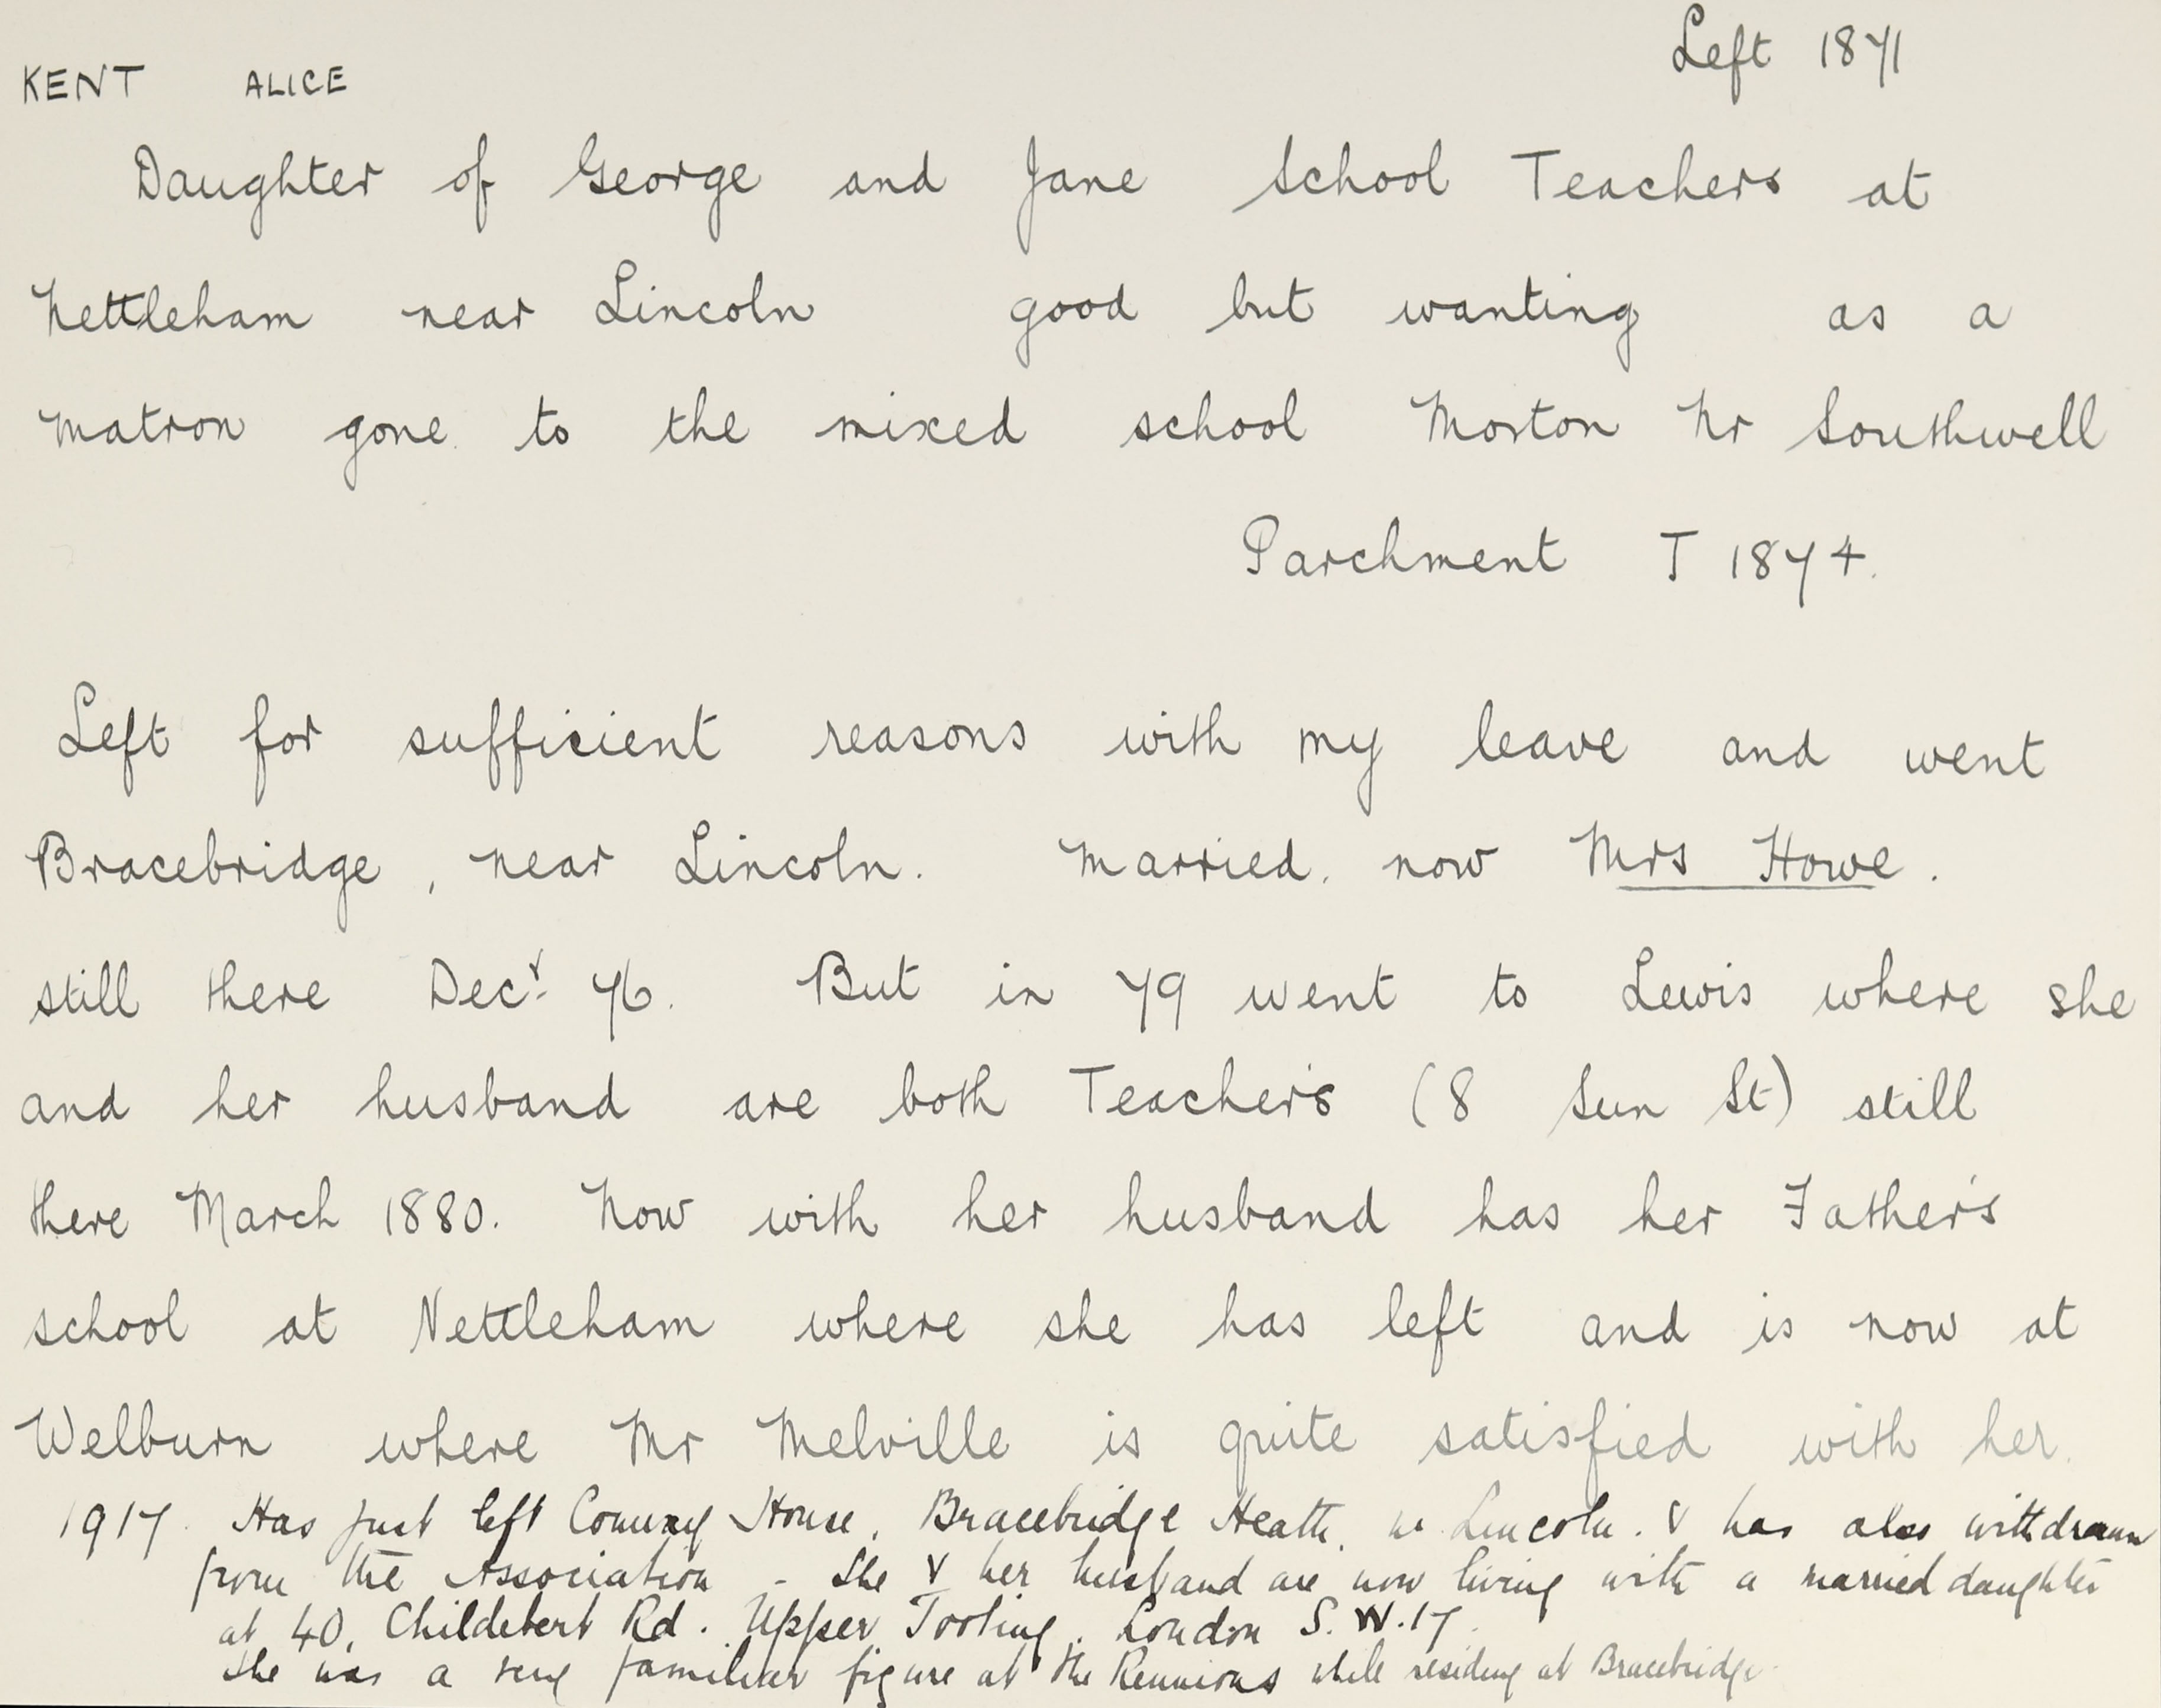 Left 1871
KENT ALICE
Daughter of George and Jane School Teachers at
Nettleham near Lincoln good but wanting as a
Matron gone to the mixed school Morton Nr Southwell
Parchment T 1874.
Left for sufficient reasons with my leave and went
Bracebridge, near Lincoln. Married. now Mrs Howe.
still there Decr. 76. But in 79 went to Lewis where she
and her husband are both Teachers (8 Sun St) still
there March 1880. Now with her husband has her Father's
school at Nettleham where she has left and is now at
Welburn where Mr Melville is quite satisfied with her.
1917. Has just left Conway House, Bracebridge Heath, nr Lincoln. & has also withdrawn
from the Association - She & her husband are now living with a married daughter
at 40, Childebert Rd. Upper Tooting. London S.W.17.
She was a very familiar figure at the Reunions while residing at Bracebridge.